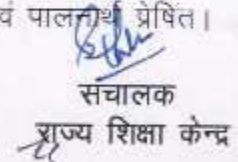 वं पालनार्थ प्रेषित।
संचालक
राज्य शिक्षा केन्द्र